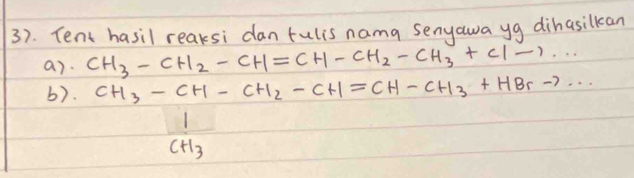 3). Tent hasil reaksi dan tulis nama senyawa yg dihasilkan
a). CH3 - CH2 - CH = CH - CH2 - CH3 + Cl → ...
b). CH3 - CH - CH2 - CH = CH - CH3 + HBr → ...
|
CH3